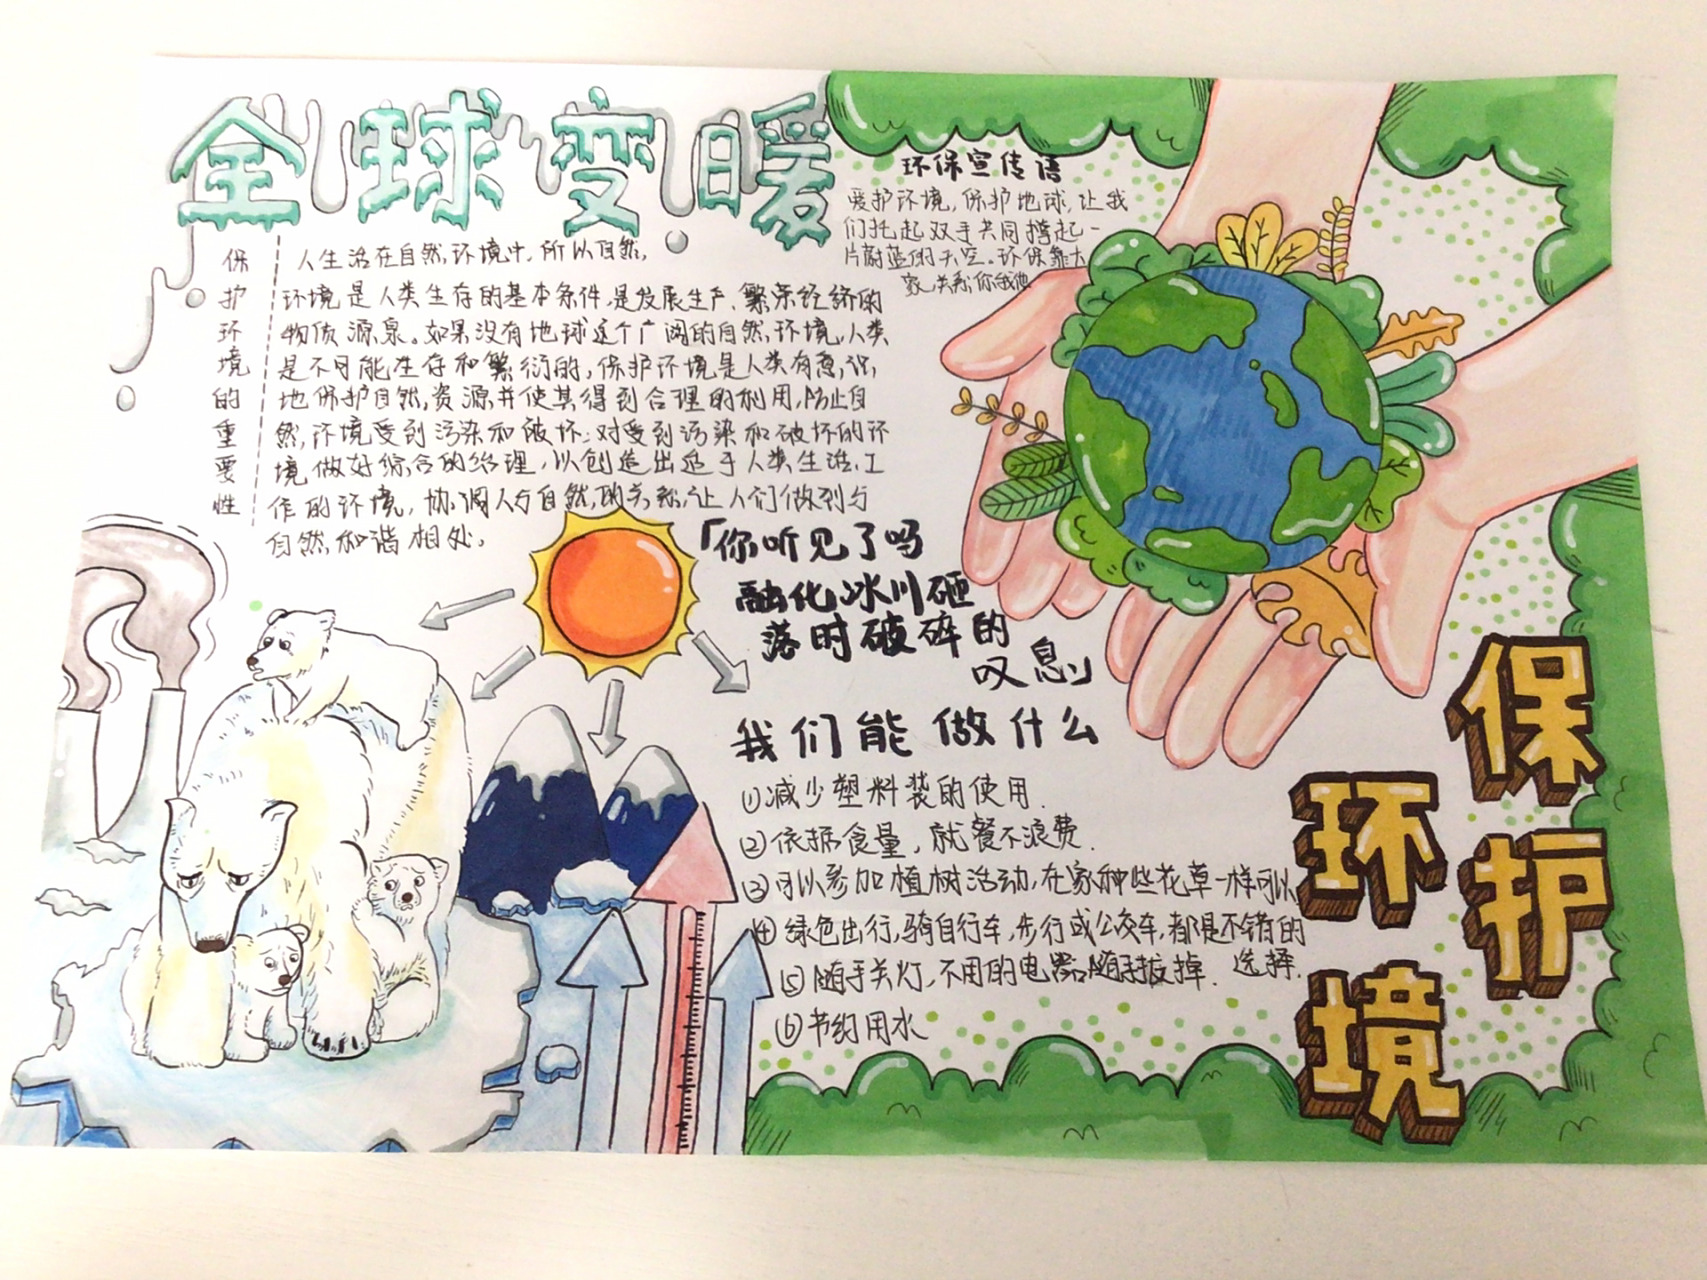 全球变暖
保护环境的重要性
人生活在自然环境中,所以自然,
环境是人类生存的基本条件,是发展生产、繁荣经济的
物质源泉。如果没有地球这个广阔的自然环境,人类
是不可能生存和繁衍的,保护环境是人类有意识,
地保护自然,资源并使其得到合理的利用,防止自
然,环境受到污染和破坏;对受到污染和破坏的环
境做好综合的治理,以创造出适于人类生活、工
作的环境,协调人与自然,的关系,让人们做到与
自然和谐相处。
环保宣传语
爱护环境,保护地球,让我
们托起双手共同撑起一
片蔚蓝的天空。环保靠大
家,关系你我他
「你听见了吗
融化冰川砸
落时破碎的
叹息」
我们能做什么
①减少塑料装的使用.
②依据食量,就餐不浪费.
③可以参加植树活动,在家种些花草一样可以
④绿色出行,骑自行车,步行或公交车,都是不错的
选择.
⑤随手关灯,不用的电器随手拔掉.
⑥节约用水
保护
环境